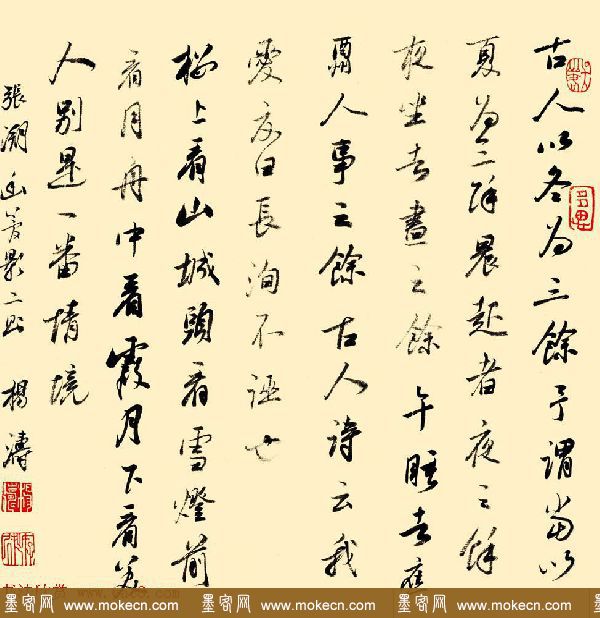 古人以冬為三餘予謂當以
夏為三餘晨起者夜之餘
夜坐者晝之餘午睡者應
酬人事之餘古人詩云我
愛夏日長洵不誣也
樓上看山城頭看雪燈前
看月舟中看霞月下看美
人別是一番情境
張潮幽夢影二則 楊濤
墨客网 www.mokecn.com 墨客网 www.mokecn.com 墨客网 www.mokecn.com